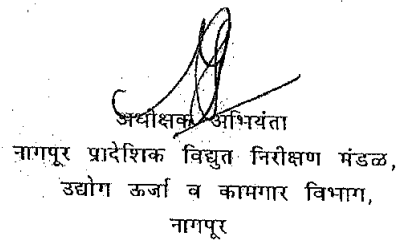 अधीक्षक अभियंता
नागपूर प्रादेशिक विद्युत निरीक्षण मंडळ,
उद्योग ऊर्जा व कामगार विभाग,
नागपूर